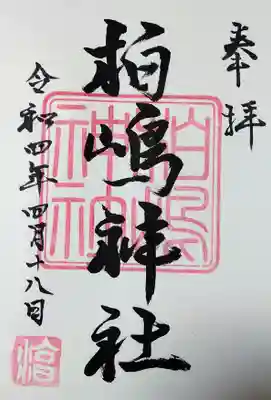 奉拝
柏嶋神社
令和四年四月十八日
柏嶋
神社